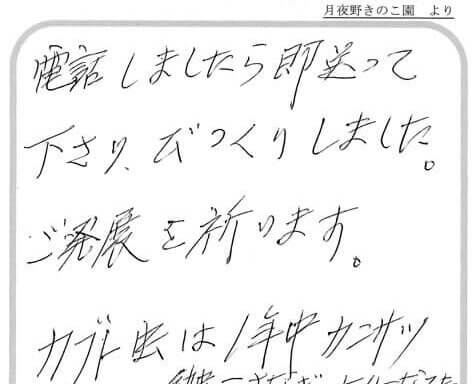 月夜野きのこ園 より
電話しましたら即送って
下さり、びっくりしました。
ご発展を祈ります。
カブト虫は1年中カンサツ